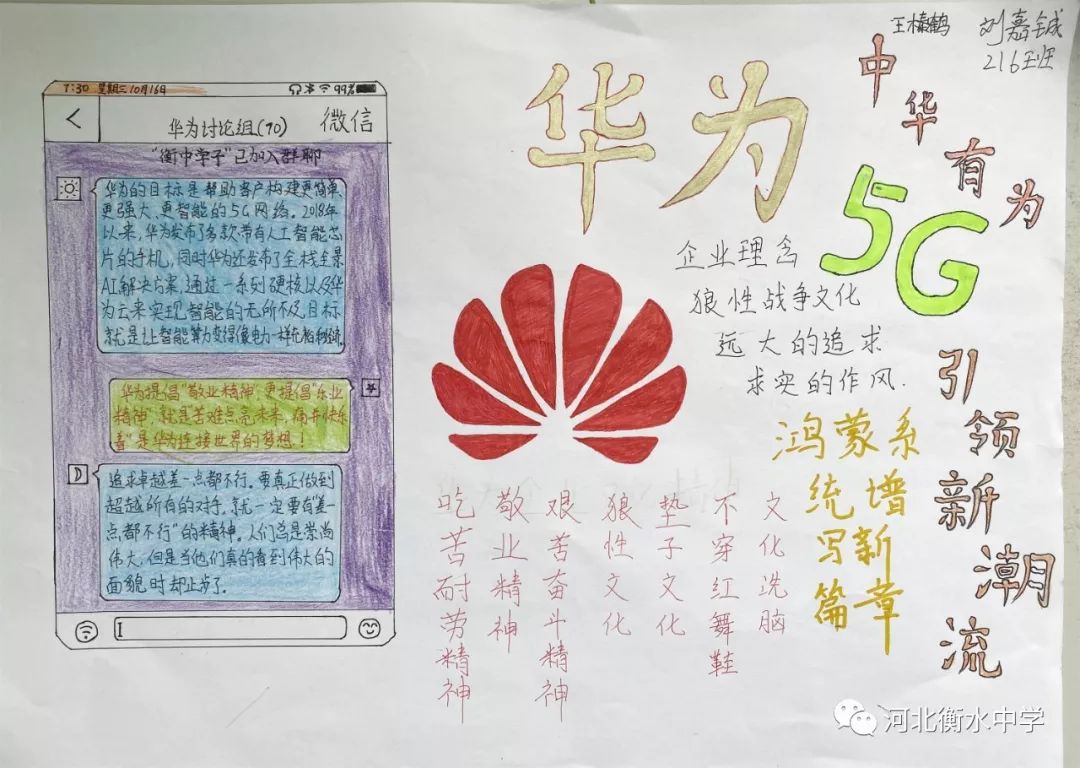 王榛鹤 刘嘉铖
216班
7:30 星期三10月16日 99%
华为讨论组(70) 微信
"衡中学子"已加入群聊
华为的目标是帮助客户构建更简单
更强大、更智能的5G网络。2018年
以来,华为发布了多款带有人工智能芯
片的手机,同时华为还发布了全栈全景
AI解决方案,通过一系列硬核以及华
为云来实现智能的无所不及,目标
就是让智能算力变得像电力一样
华为提倡"敬业精神"更提倡"乐业
精神",就是苦难点亮未来,"痛并快乐
着"是华为连接世界的梦想!
追求卓越差一点都不行。要真正做到
超越所有的对手,就一定要有"差一
点都不行"的精神。人们总是崇尚
伟大,但是当他们真的看到伟大的
面貌时却止步了。
华为
企业理念
狼性战争文化
远大的追求
求实的作风.
中华有为
5G
引领新潮流
鸿蒙系
统增
写新
篇章
吃苦耐劳精神
敬业精神
艰苦奋斗精神
狼性文化
垫子文化
不穿红舞鞋
文化洗脑
河北衡水中学